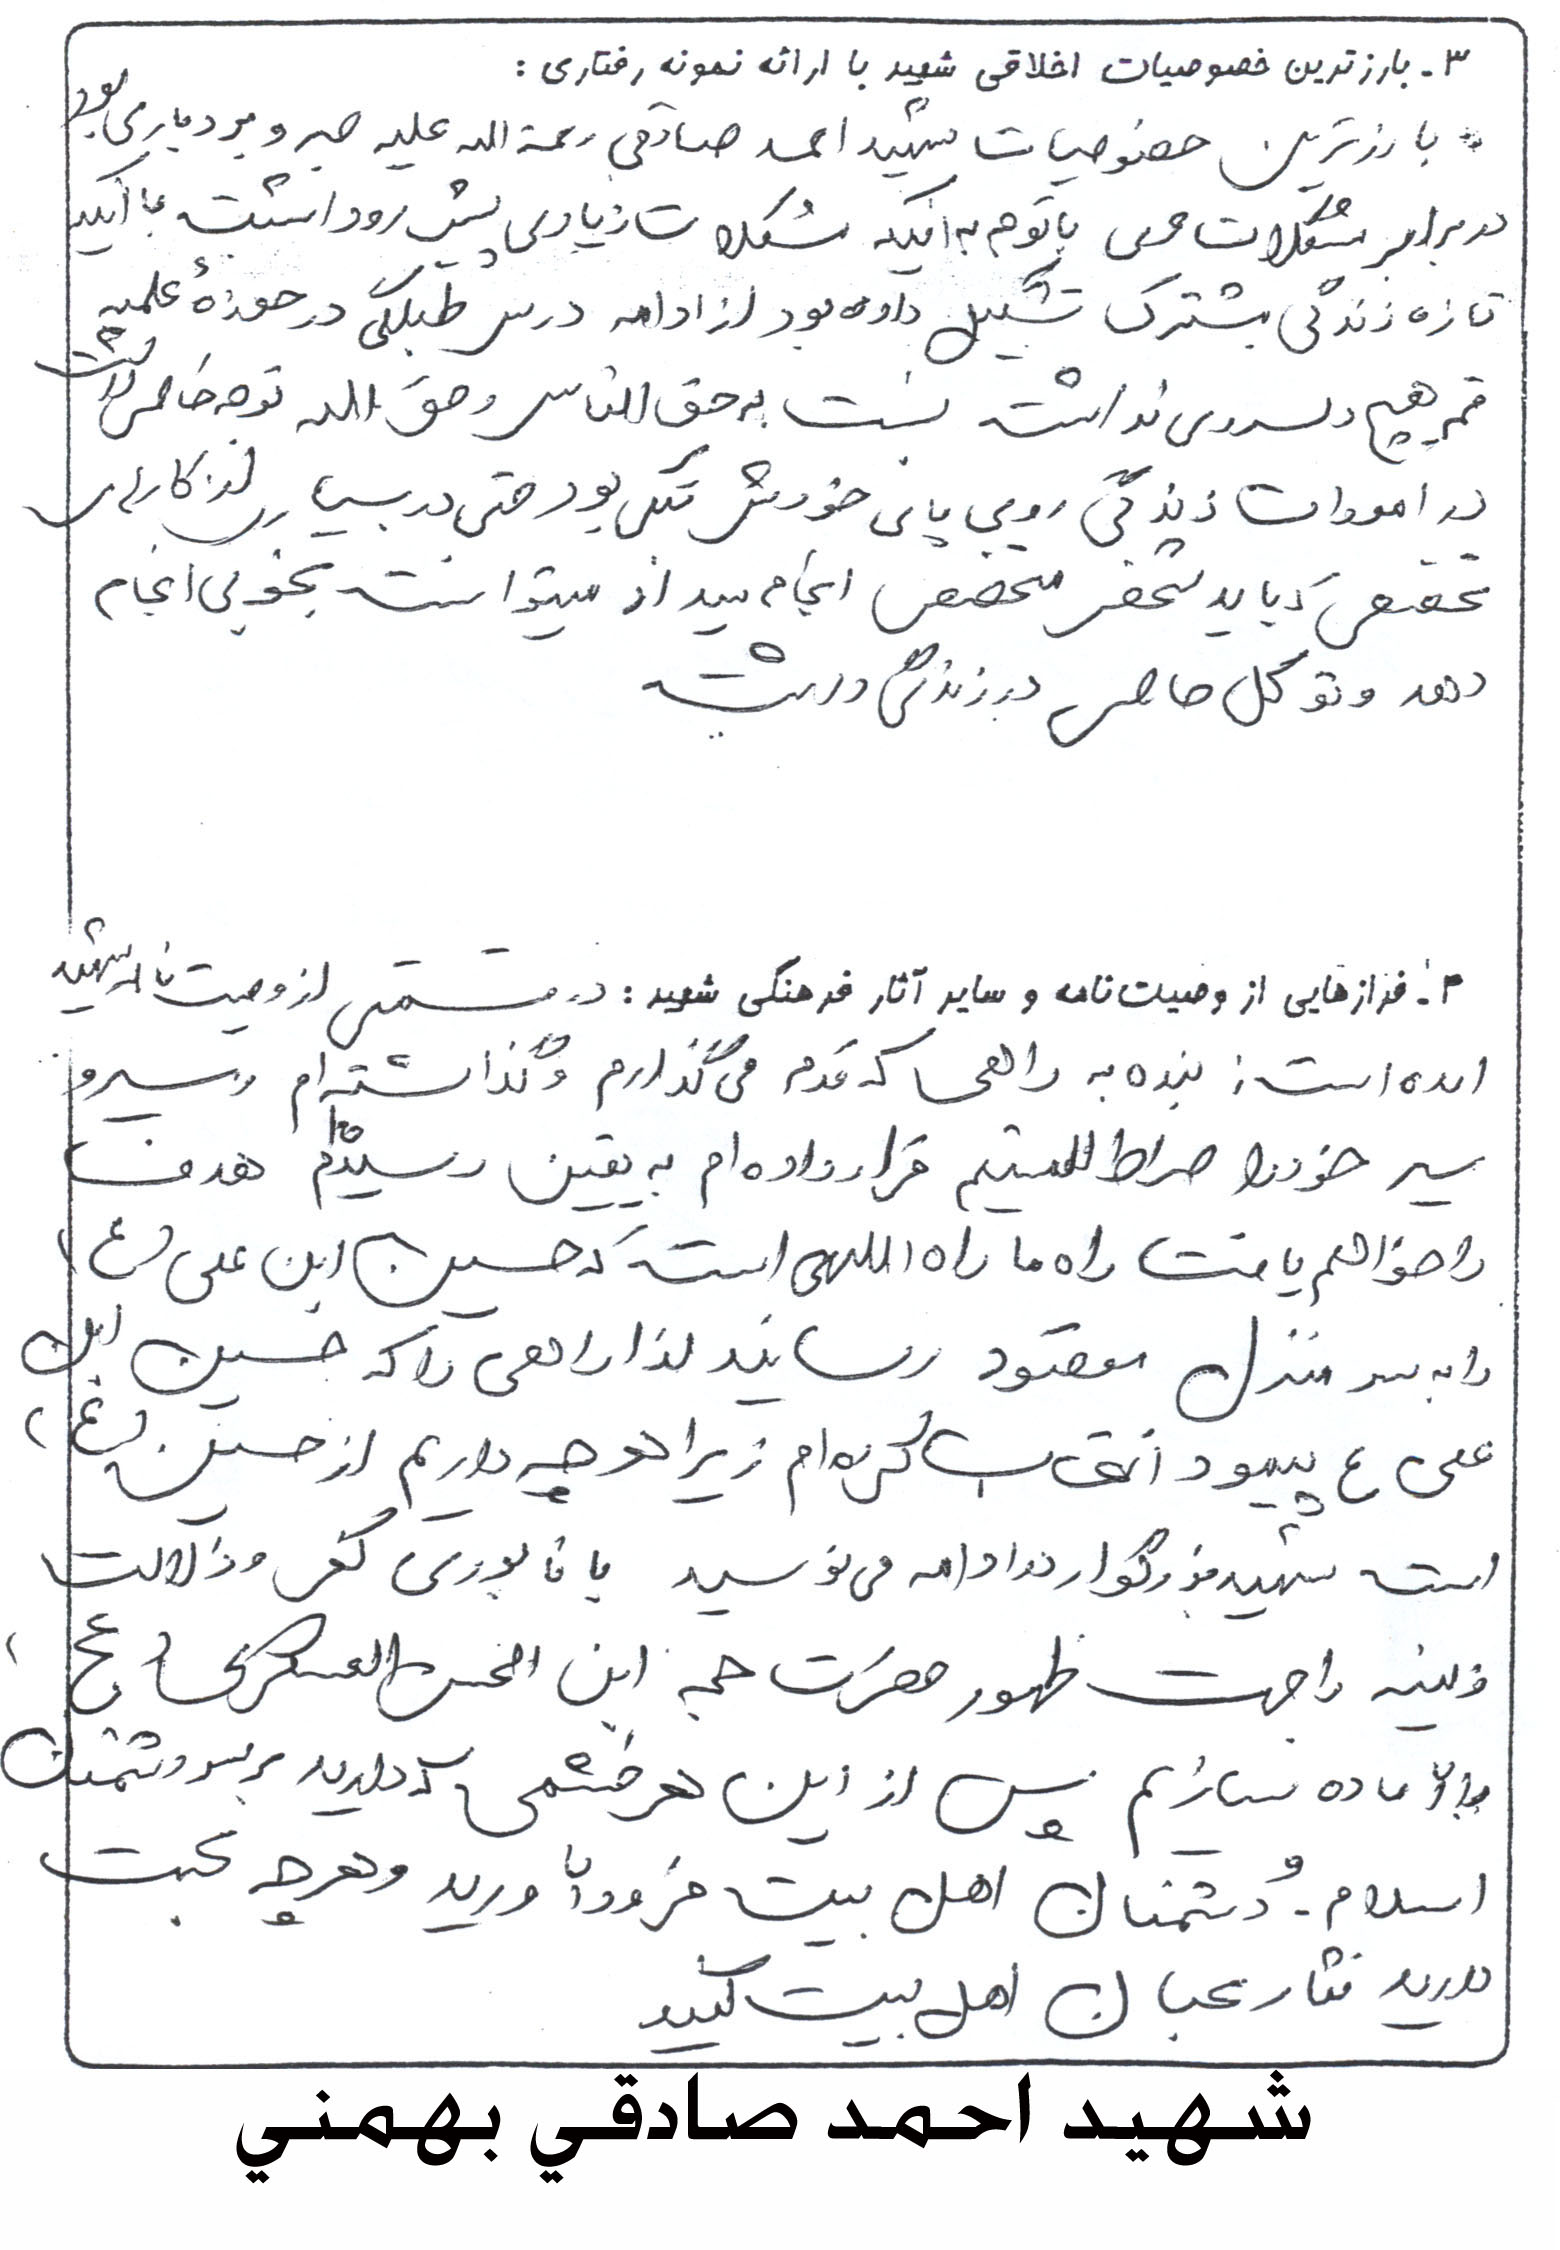 ۳ـ بارزترین خصوصیات اخلاقی شهید با ارائه نمونه رفتاری:
* بارزترین خصوصیات شهید احمد صادقی رحمة الله علیه صبر و بردباری بود
در برابر مشکلات باتوجه به اینکه مشکلات زیادی پیش رو داشت با اینکه
تازه زندگی مشترک تشکیل داده بود از ادامه درس طلبگی در حوزهٔ علمیه
قم هیچ دلسردی نداشت نسبت به حق الناس و حق الله توجه خاص داشت
در امورات زندگی روی پای خودش متکی بود حتی در بسیاری از کارهای
تخصصی که باید شخص متخصص انجام میداد میتوانست بخوبی انجام
دهد و توکل خاص در زندگی داشت
۴ـ فرازهایی از وصیت نامه و سایر آثار فرهنگی شهید: در قسمتی از وصیت نامه شهید
امده است: بنده به راهی که قدم می گذارم و گذاشته ام و سیر و
سیر خود را صراط المستقیم قرار داده ام به یقین رسیده ام هدف
را خواهم یافت راه ما راه اللهی است که حسین ابن علی (ع)
را به سر منزل مقصود رساند لذا راهی را که حسین ابن
علی ع پیمود انتخاب کرده ام زیرا هر چه داریم از حسین (ع)
است شهید بزرگوار در ادامه می نویسید با نابودی کفر و ذلالت
زمینه را جهت ظهور حضرت حجة ابن الحسن العسکری (عج)
را اماده سازیم پس از این هر خشمی که دارید بر سر دشمنان
اسلام ـ و دشمنان اهل بیت فرود آورید و هر چه محبت
دارید نثار محبان اهل بیت کنید
شهيد احمد صادقي بهمني